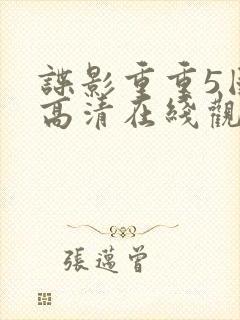 諜影重重5
高清在綫觀
張邁曾